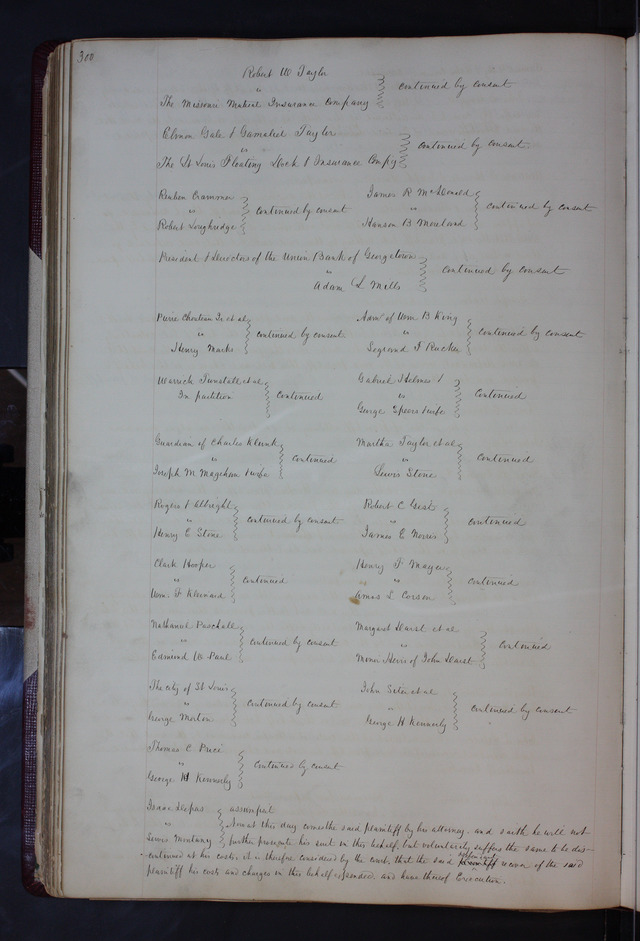 300
Robert W Taylor
vs
The Missouri Mutual Insurance Company
continued by consent
Gale & Gamaliel Taylor
vs
The St Louis Floating Dock & Insurance Compy
continued by consent
Reuben Crammer
vs
Robert Loughridge
continued by consent
James R McDonald
vs
Hanson B. Moreland
continued by consent
President & Directors of the Union Bank of Georgetown
vs
Adam L Mills
continued by consent
Pierre Chouteau Jr et al
vs
Henry Marks
continued by consent
Admr of Wm B King
vs
F Rucker
continued by consent
Warrick Tunstall et al
In partition
continued
Gabriel Holmes &
vs
George Speers & wife
continued
Guardian of Charles Klunk
vs
Joseph M. & wife
continued
Martha Taylor et al
vs
Lewis Stone
continued
Rogers & Albright
vs
Henry E Stone
continued by consent
Robert C Geist
vs
James E Norris
continued
Clark Hooper
vs
Wm. F
continued
Henry F Mayer
vs
Amos L Corson
continued
Nathaniel Paschall
vs
Edmond W Paul
continued by consent
Margaret Hurst et al
vs
Minor Heirs of John Hurst
continued
The city of St Louis
vs
George Morton
continued by consent
John et al
vs
George H Kennerly
continued by consent
Thomas C Price
vs
George H Kennerly
continued by consent
Isaac assumpsit
vs
Lewis Montany
Now at this day comes the said plaintiff by his attorney. and saith he will not
further prosecute his suit in this behalf, but voluntarily suffers the same to be dis-
continued at his costs, it is therefore considered by the court, that the said defendant recover of the said
plaintiff his costs and charges in this behalf expended. and have thereof Execution.